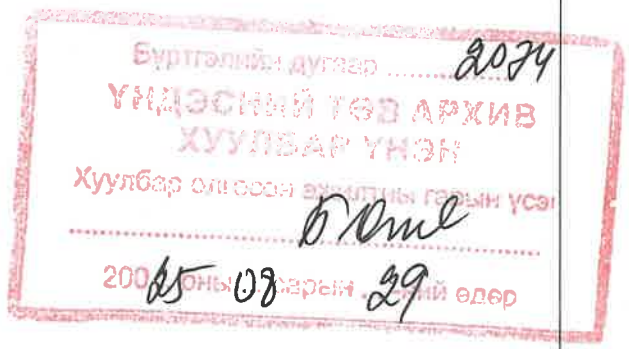 Бүртгэлийн дугаар ........ 2074
ҮНДЭСНИЙ ТӨВ АРХИВ
ХУУЛБАР ҮНЭН
Хуулбар олгосон ажилтны гарын үсэг
200 25 оны 08 сарын 29 ний өдөр